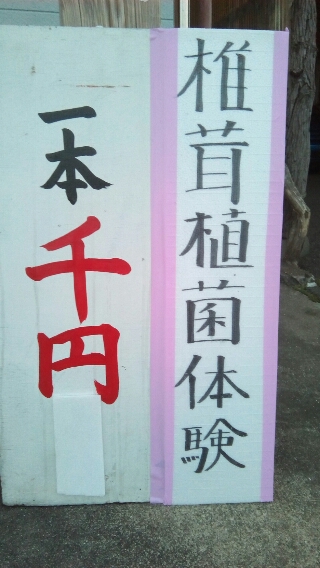 椎茸植菌体験
一本千円